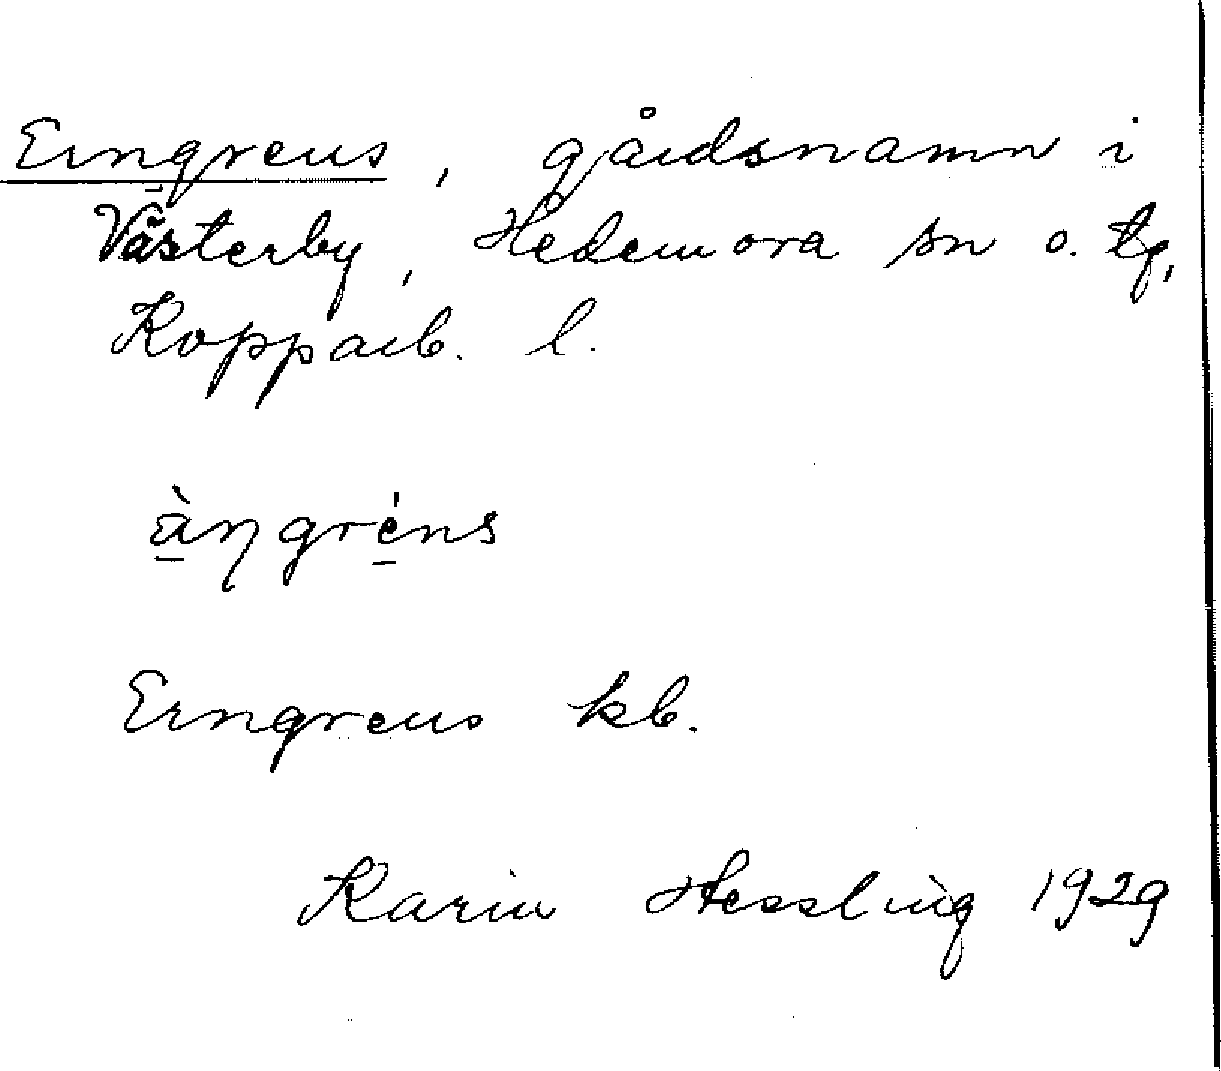 Erngrens, gårdsnamn i
Västerby, Hedemora sn o. tg,
Kopparb. l.
àŋgréns
Erngrens kb.
Karin Hessling 1929